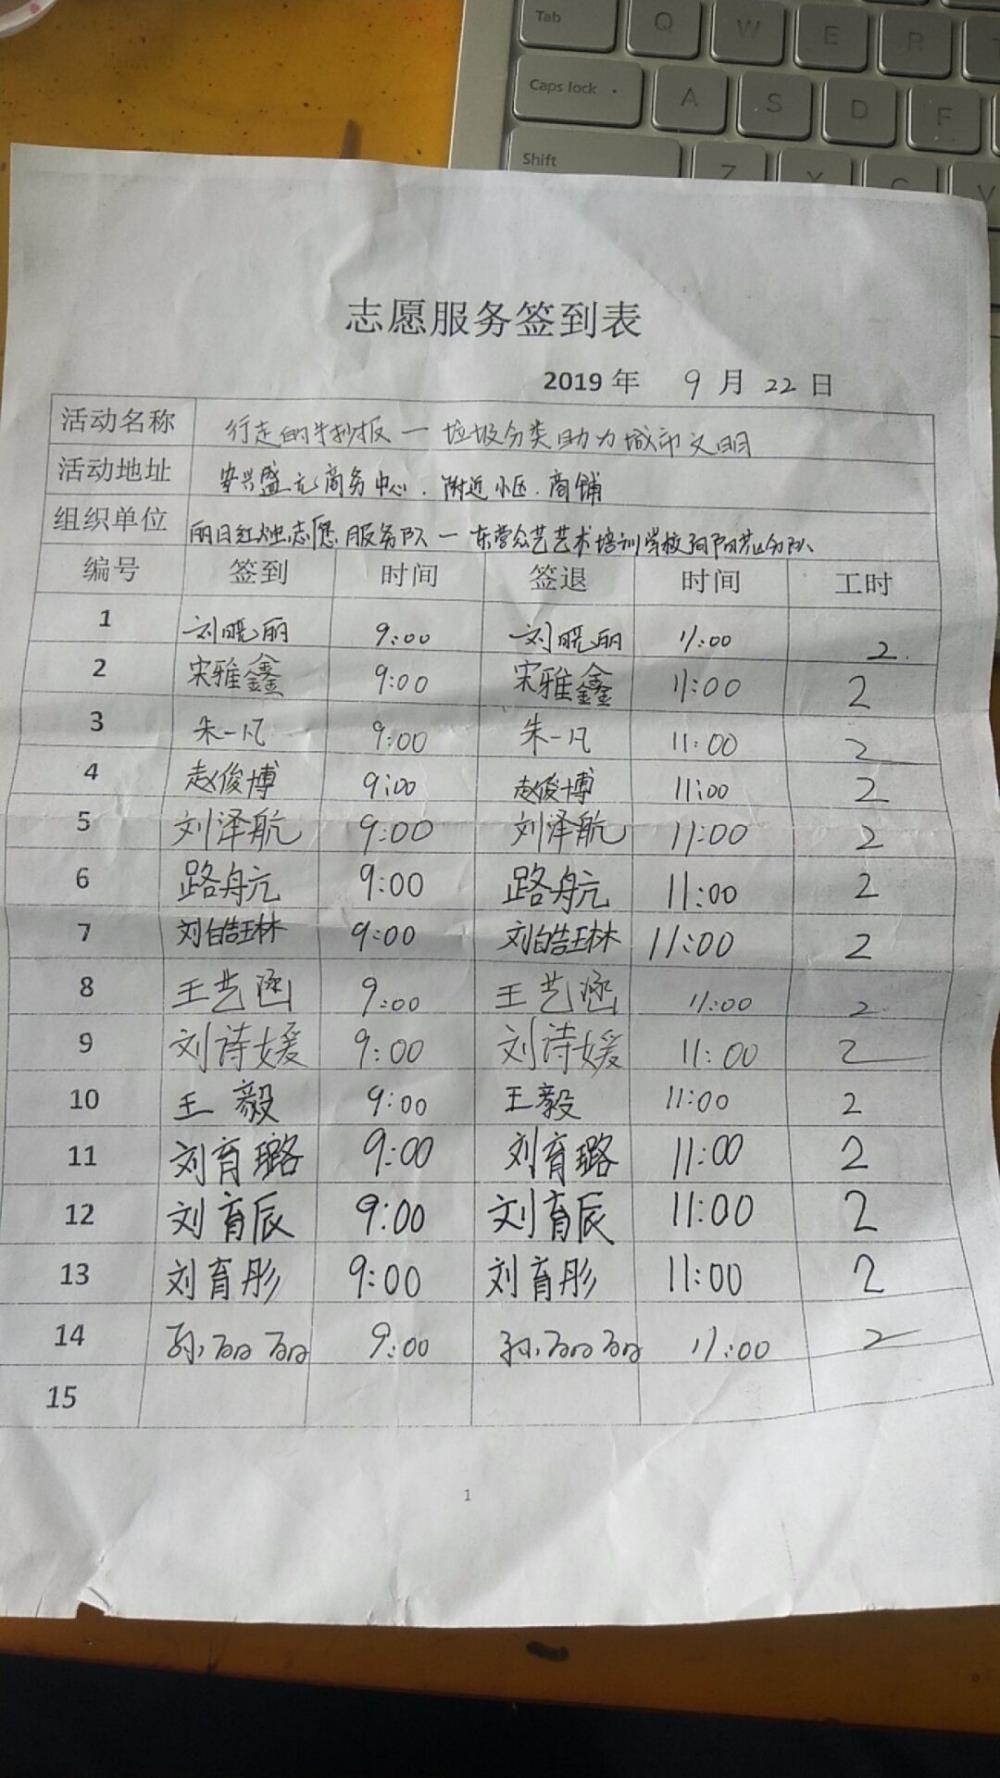 Tab Q W E R
Caps lock A S D F
Shift Z X C V
志愿服务签到表
2019 年 9 月 22 日
活动名称 行走的手抄报一垃圾分类助力城市文明
活动地址 安兴盛元商务中心.附近小区.商铺
组织单位 丽日红烛志愿服务队一东营众艺艺术培训学校向阳花分队
编号 签到 时间 签退 时间 工时
1 刘晓丽 9:00 刘晓丽 11:00 2.
2 宋雅鑫 9:00 宋雅鑫 11:00 2
3 朱一凡 9:00 朱一凡 11:00 2
4 赵俊博 9:00 赵俊博 11:00 2
5 刘泽航 9:00 刘泽航 11:00 2
6 路航 9:00 路航 11:00 2
7 刘皓琳 9:00 刘皓琳 11:00 2
8 王艺涵 9:00 王艺涵 11:00 2
9 刘诗媛 9:00 刘诗媛 11:00 2
10 王毅 9:00 王毅 11:00 2
11 刘育璐 9:00 刘育璐 11:00 2
12 刘育辰 9:00 刘育辰 11:00 2
13 刘育彤 9:00 刘育彤 11:00 2
14 孙丽丽 9:00 孙丽丽 11:00 2
15
1